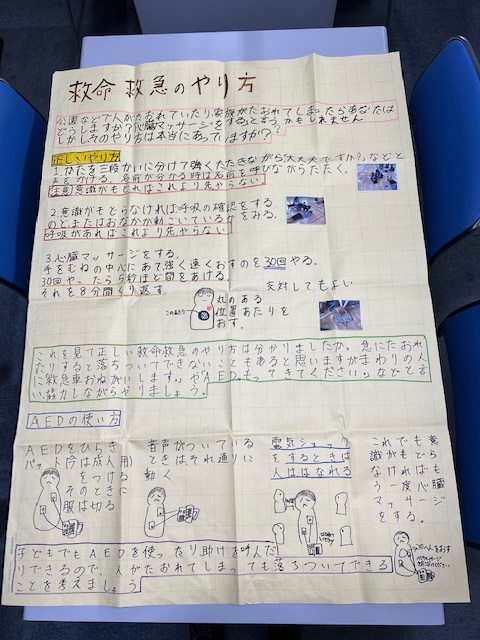 救命救急のやり方
公園などで人がたおれていたり家族がたおれてしまったらあなたは
どうしますか?心臓マッサージをするとおもうかもしれません
しかしそのやり方は本当にあっていますか?
正しいやり方
1.かたを三段かいに分けて強くたたきながら大丈夫ですか?などと
声をかける。名前が分かる時は名前を呼びながらたたく。
注意意識がもどればこれより先やらない
2.意識がもどらなければ呼吸の確認をする
のどまたはおなかが動こいているかをみる。
呼吸があればこれより先やらない
3.心臓マッサージをする。
手をむねの中心にあて強く速くおすのを30回やる。
30回やったら 秒ほど間をあける。
それを8分間くり返す
交対してもよい
このあたり
丸のある
位置あたりを
おす。
これを見て正しい救命救急のやり方は分かりましたか。急にたおれ
たりすると落ちついてできないこともあると思いますがまわりの人
に救急車おねがいします。やAEDもってきてください。などと言
い協力しながらやりましょう。
AEDの使い方
AEDをひらき
パット(今は成人用)
をつける
そのときに
服は切る
音声がついている
ときはそれ通りに
動く
電気ショック
をするときは
人ははなれる
これでも意
識がもどら
なければも
う一度心臓
マッサージ
をする。
子どもでもAEDを使ったり助けを呼んだ
りできるので、人がたおれてしまっても落ちついてできる
ことを考えましょう